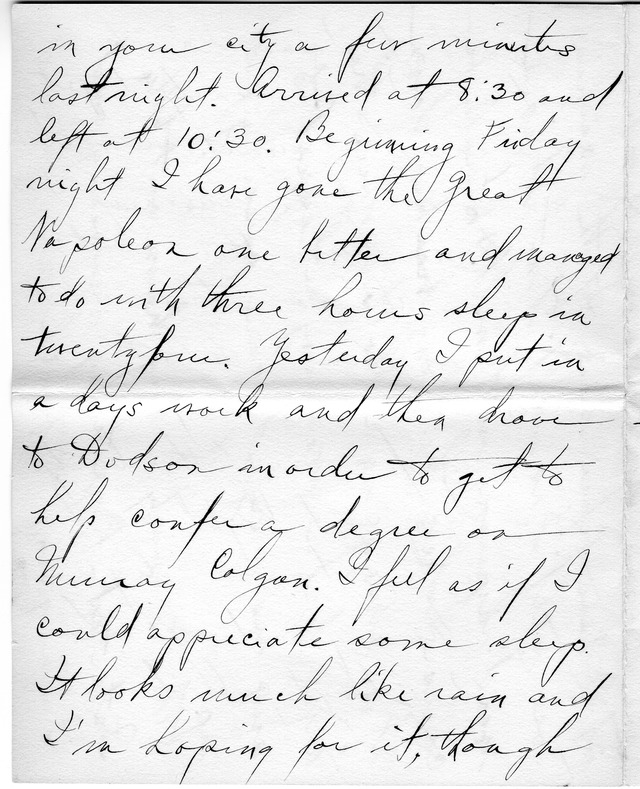 in your city a few minutes
last night. Arrived at 8:30 and
left at 10:30. Beginning Friday
night I have gone the great
Napoleon one better and managed
to do with three hours sleep in
twentyfour. Yesterday I put in
a days work and then drove
to Dodson in order to get to
help confer a degree on
Murray Colgan. I feel as if I
could appreciate some sleep.
It looks much like rain and
I'm hoping for it, though